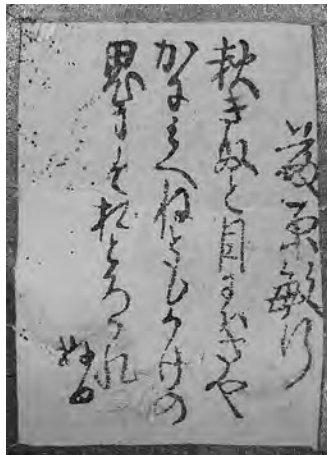 藤原敏行
秋きぬと目にはさや
かにみえねともかせの
音にそおとろかれ
ぬる